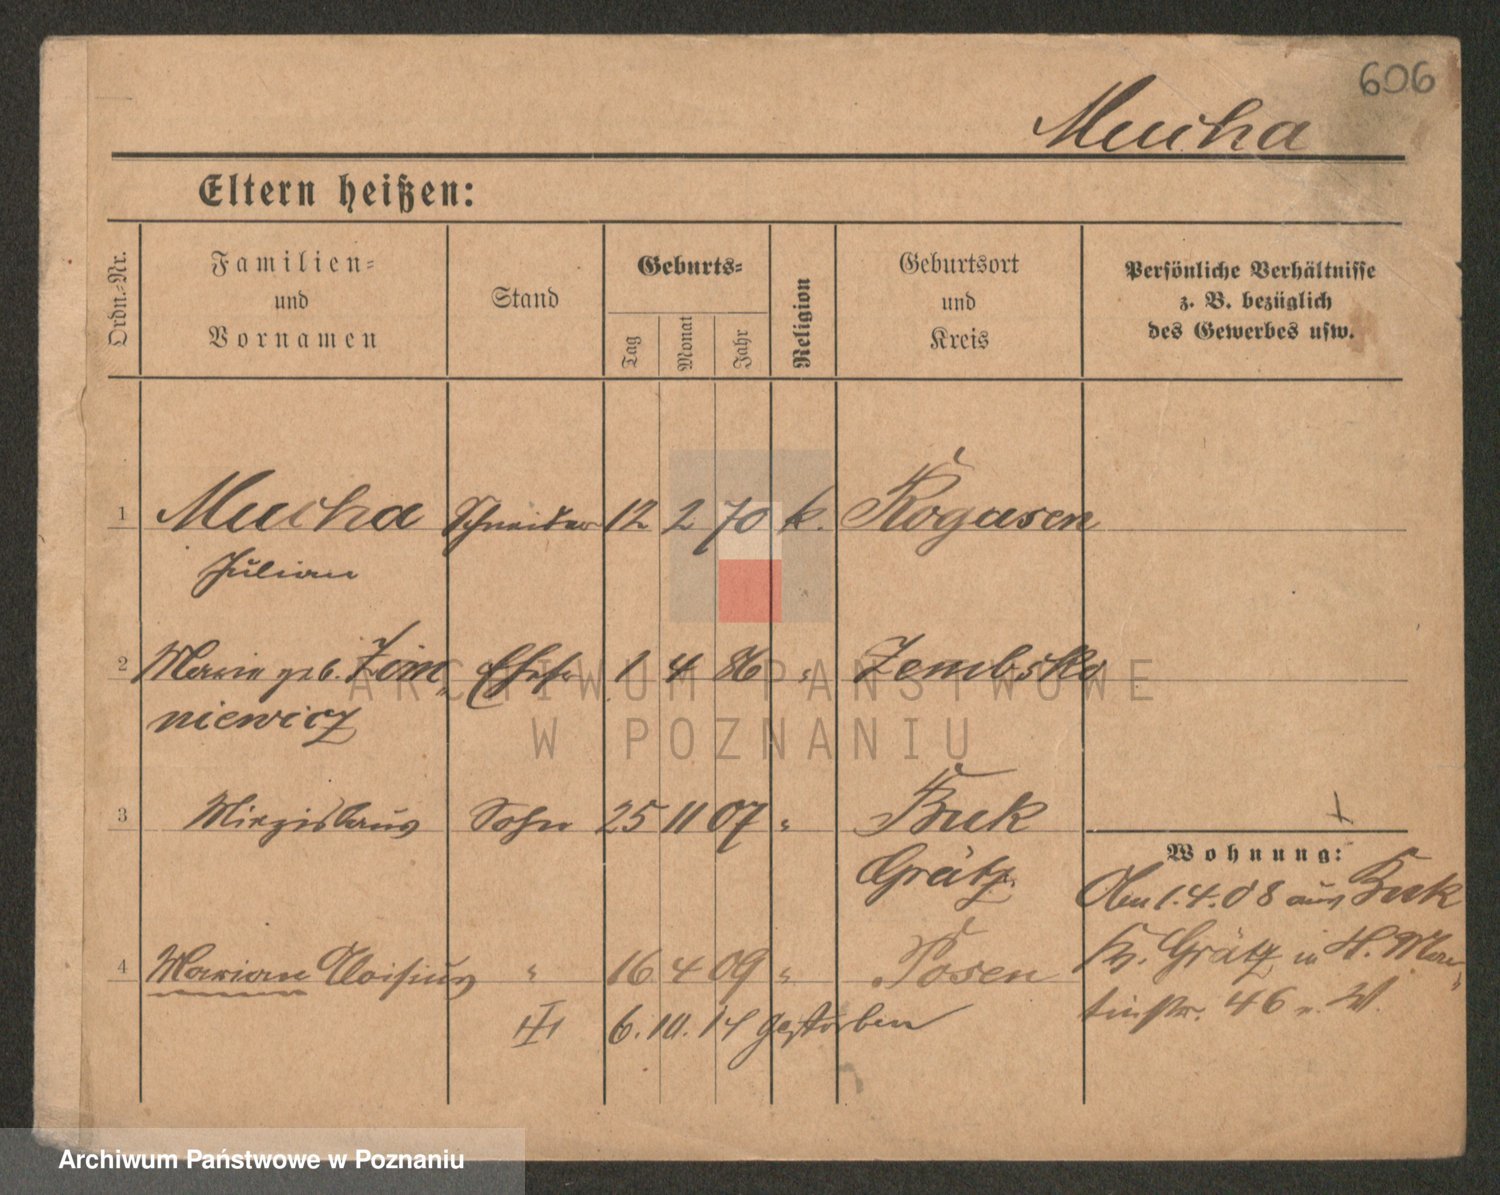 606
Mucha
Eltern heißen:
Ordn.-Nr.
Familien-
und
Vornamen
Stand
Geburts-
Tag
Monat
Jahr
Religion
Geburtsort
und
Kreis
Persönliche Verhältnisse
z. B. bezüglich
des Gewerbes usw.
1 Mucha Schneider 12 2 70 k. Rogasen
Julian
2 Marie geb. Zim- Ehefr 1 4 86 " Zembsko
niewicz
3 Miezislaus Sohn 25 11 07 " Buk
Grätz.
4 Marian Aloisius " 16 4 09 " Posen
6.10.14 gestorben
Wohnung:
Am 1.4.08 aus Buk
Kr. Grätz in St. Mar-
tinstr. 46 v. W.
ARCHIWUM PAŃSTWOWE
W POZNANIU
Archiwum Państwowe w Poznaniu